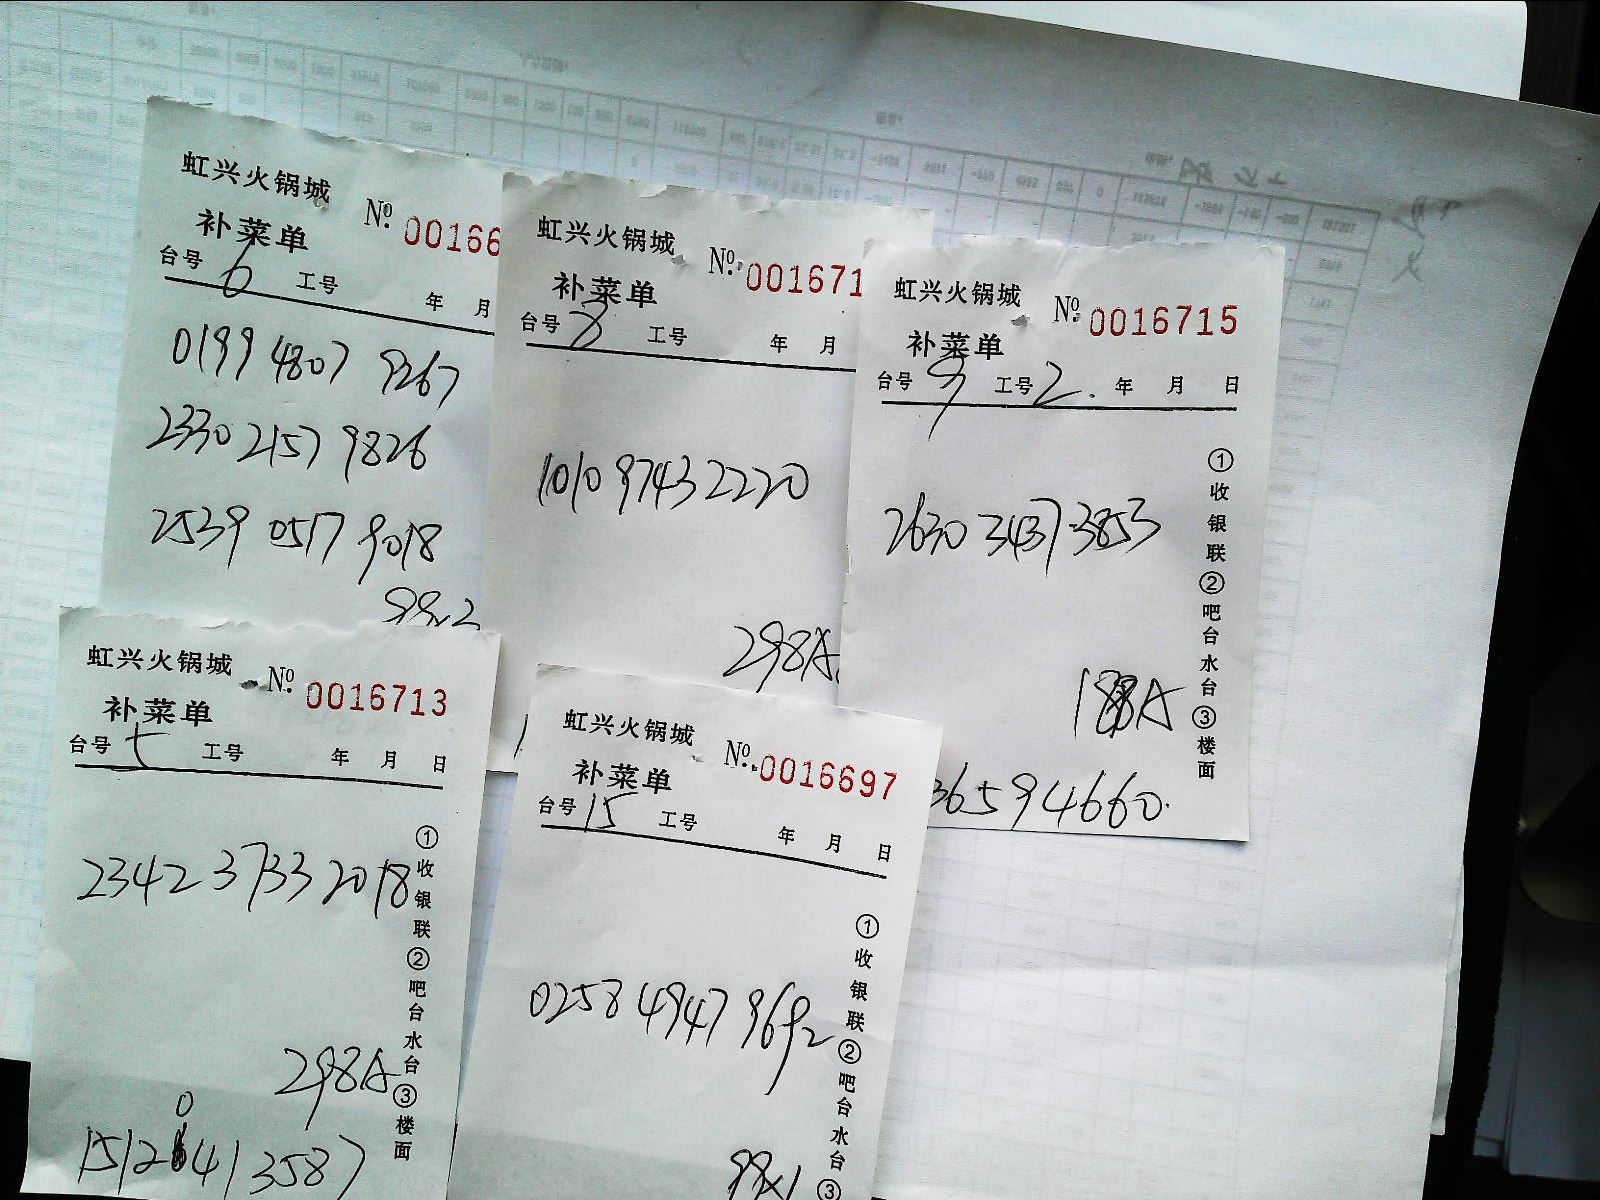 虹兴火锅城 No. 00166
补菜单
台号 6 工号 年 月
0199 4807 9267
2330 2157 9826
2539 0517 9018
99x2
虹兴火锅城 No. 001671
补菜单
台号 8 工号 年 月
1010 9743 2220
298A
虹兴火锅城 No. 0016715
补菜单
台号 9 工号 2. 年 月 日
2630 3437 3853
188A
36594660
①收银联②吧台水台③楼面
虹兴火锅城 No. 0016713
补菜单
台号 5 工号 年 月 日
2342 3733 2018
298A
0
1512 41 3587
①收银联②吧台水台③楼面
虹兴火锅城 No. 0016697
补菜单
台号 15 工号 年 月 日
0258 4947 9692
99x1
①收银联②吧台水台③